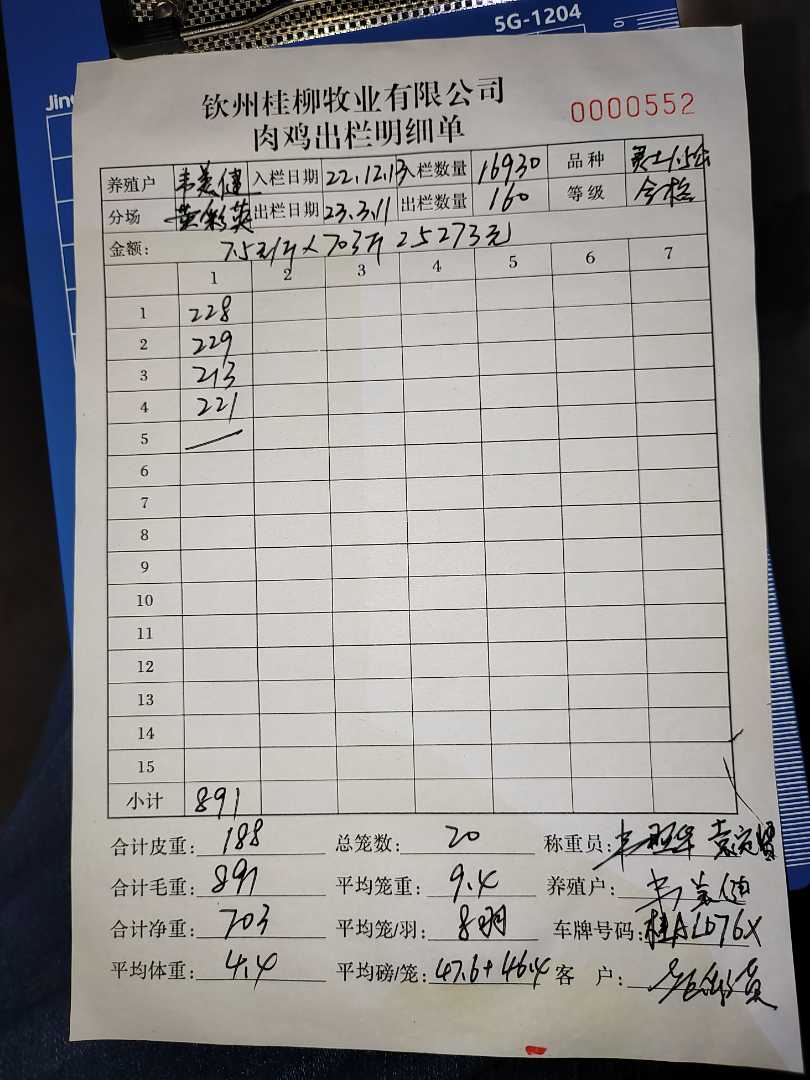 5G-1204
Jin
钦州桂柳牧业有限公司
0000552
肉鸡出栏明细单
养殖户 韦美健 入栏日期 22.12.13 入栏数量 16930 品种
分场 黄彩英 出栏日期 23.3.11 出栏数量 160 等级 合格
金额: 7.5元/斤 × 703斤 = 5273元
1 2 3 4 5 6 7
1 228
2 229
3 213
4 221
5
6
7
8
9
10
11
12
13
14
15
小计 891
合计皮重: 188 总笼数: 20 称重员:
合计毛重: 891 平均笼重: 9.4 养殖户: 韦美健
合计净重: 703 平均笼/羽: 8羽 车牌号码: 桂A1D76X
平均体重: 4.4 平均磅/笼: 47.6+46.4 客 户: